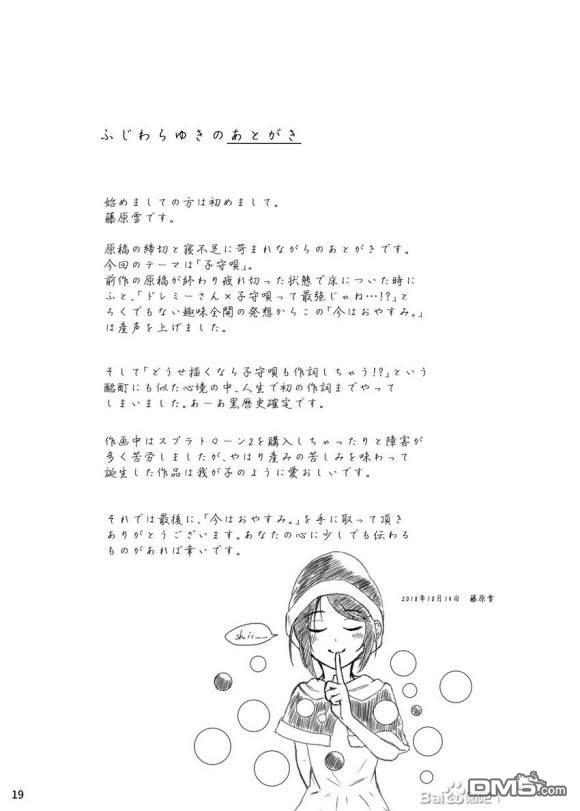 ふじわらゆきのあとがき
始めましての方は初めまして。
藤原雪です。
原稿の締切と寝不足に苛まれながらのあとがきです。
今回のテーマは「子守唄」。
前作の原稿が終わり疲れ切った状態で床についた時に
ふと、「ドレミーさん×子守唄って最強じゃね…!?」と
ろくでもない趣味全開の発想からこの「今はおやすみ。」
は産声を上げました。
そして「どうせ描くなら子守唄も作詞しちゃう!?」という
酩酊にも似た心境の中、人生で初の作詞までやって
しまいました。あーあ黒歴史確定です。
作画中はスプラトゥーン2を購入しちゃったりと障害が
多く苦労しましたが、やはり産みの苦しみを味わって
誕生した作品は我が子のように愛おしいです。
それでは最後に、「今はおやすみ。」を手に取って頂き
ありがとうございます。あなたの心に少しでも伝わる
ものがあれば幸いです。
2018年10月14日 藤原雪
shii——
19
Bai
DM5.com